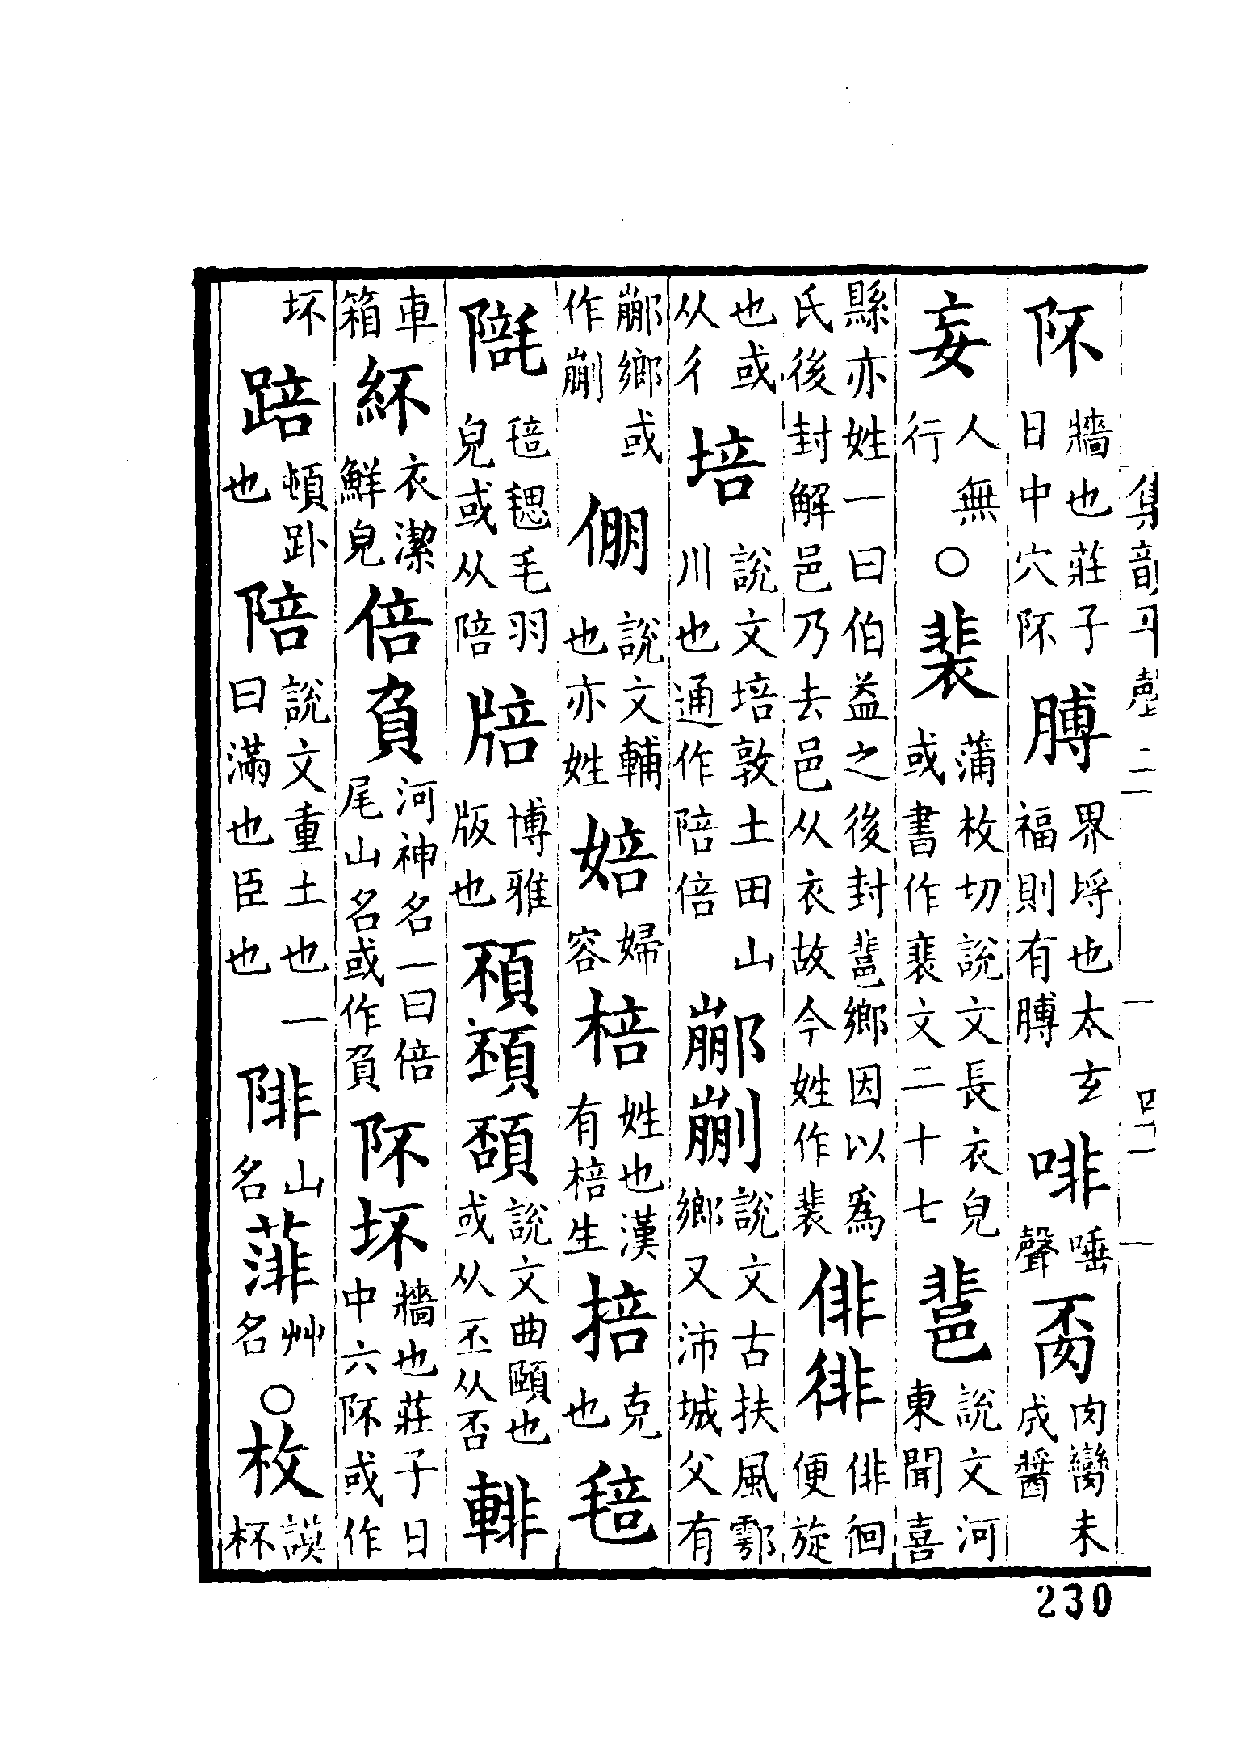 集韻平聲二
阫牆也莊子日中穴阫膊界埒也太玄福則有膊啡唾聲肧肉臠未成醬
人無行○裴蒲枚切說文長衣皃或書作裵文二十七𨛬說文河東聞喜
縣亦姓一曰伯益之後封𨛬鄉因以爲氏後封解邑乃去邑从衣故今姓作裴俳徘俳徊便旋
也或从彳培說文培敦土田山川也通作陪倍𨛜𠜴說文古扶風鄠鄉又沛城父有
𨛜鄉或作𠜴倗說文輔也亦姓婄婦容棓姓也漢有棓生掊克也毰
毰毸毛羽皃或从陪㾦博雅版也頿說文曲頤也或从丕从否輫
車箱紑衣潔鮮皃倍負河神名一曰倍尾山名或作負阫坏牆也莊子日中六阫或作
坏踣頓趴也陪說文重土也一曰滿也臣也陫山名䔹艸名○枚謨杯
230